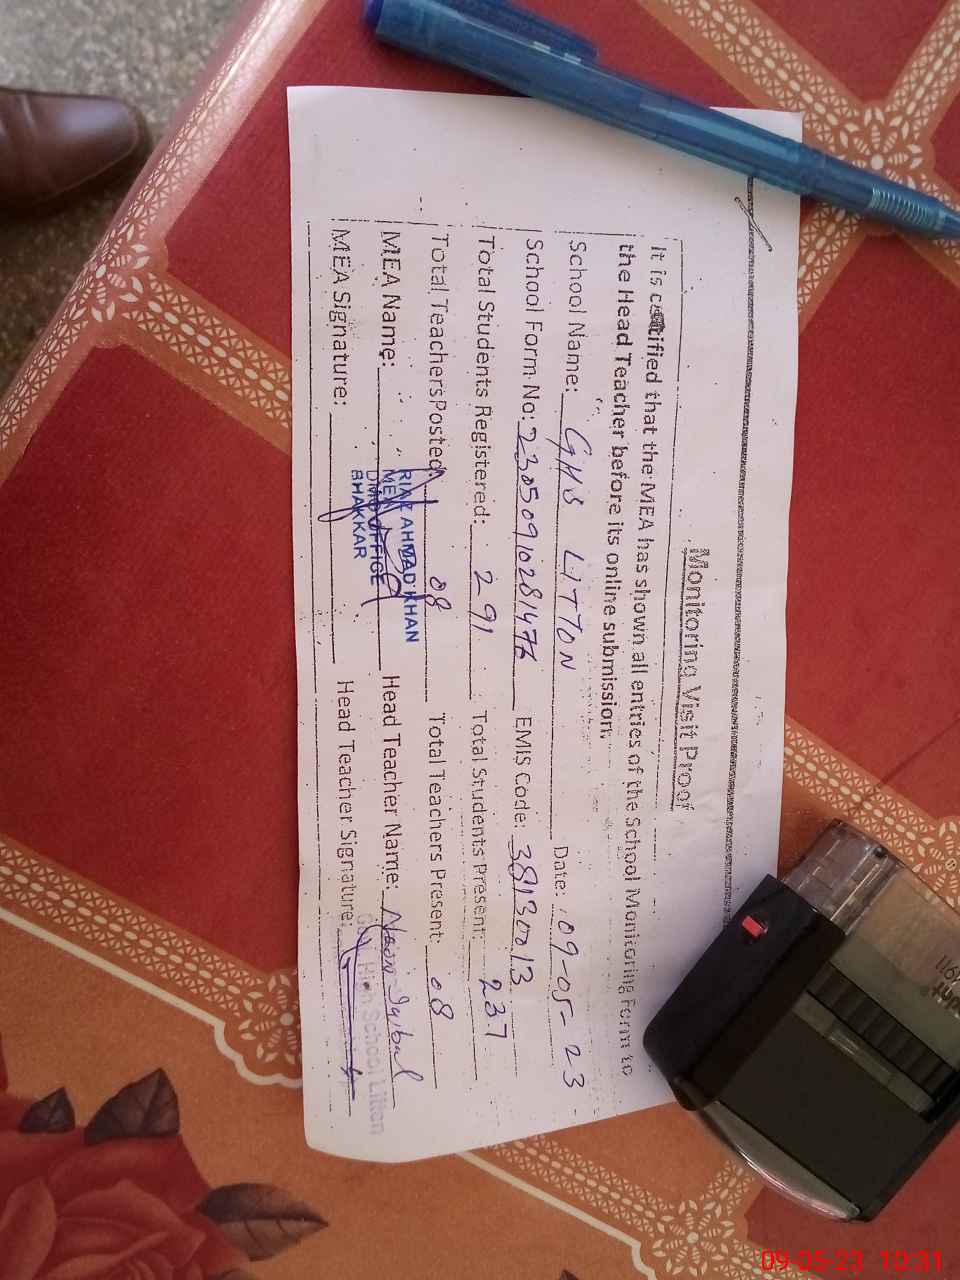 Monitoring Visit Proof
It is certified that the MEA has shown all entries of the School Monitoring Form to
the Head Teacher before its online submission.
School Name: GHS LITTON Date: 09-05-23
School Form No: 2305091028147 EMIS Code: 38130013
Total Students Registered: 291 Total Students Present: 237
Total Teachers Posted: 08 Total Teachers Present: 08
MEA Name: RIAZ AHMAD KHAN Head Teacher Name: Iqbal
MEA
DMO OFFICE
BHAKKAR
MEA Signature: Head Teacher Signature:
High School Litton
09-05-23 10:31